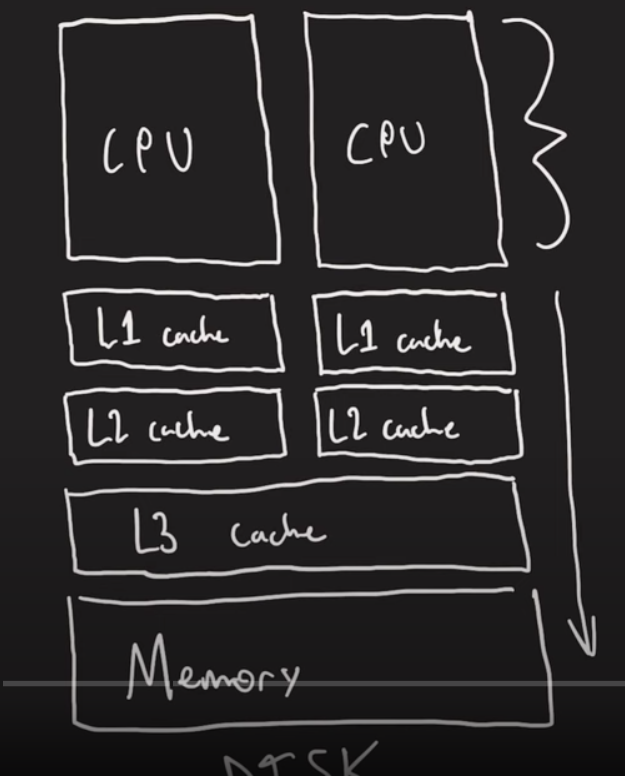 CPU CPU
L1 cache L1 cache
L2 cache L2 cache
L3 cache
Memory
DISK